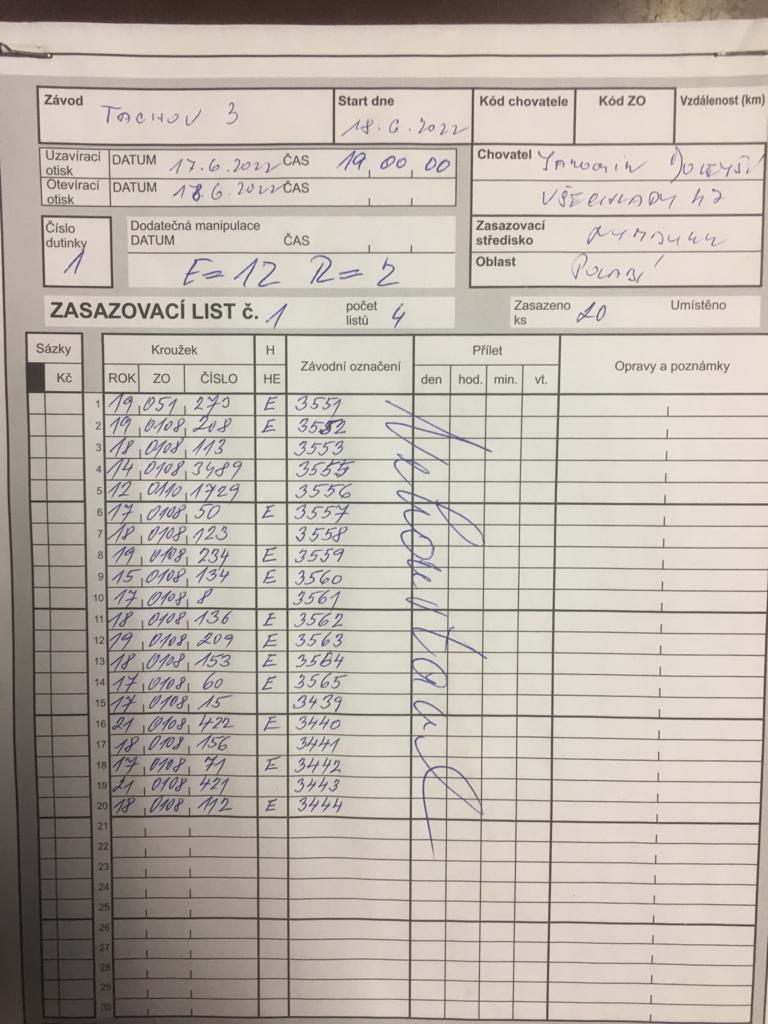 Závod TACHOV 3 Start dne 18.6.2022 Kód chovatele Kód ZO Vzdálenost (km)
Uzavírací otisk DATUM 17.6.2022 ČAS 19 00 00 Chovatel
Otevírací otisk DATUM 18.6.2022 ČAS VŠECHLAPY 47
Číslo dutinky 1 Dodatečná manipulace DATUM ČAS Zasazovací středisko
E=12 R=2 Oblast POLABÍ
ZASAZOVACÍ LIST č. 1 počet listů 4 Zasazeno ks 20 Umístěno
Sázky Kroužek H Závodní označení Přílet Opravy a poznámky
Kč ROK ZO ČÍSLO HE den hod. min. vt.
1 19 051 273 E 3551
2 19 0108 208 E 3552
3 18 0108 113 3553
4 14 0108 3489 3555
5 12 0110 1729 3556
6 17 0108 50 E 3557
7 18 0108 123 3558
8 19 0108 234 E 3559
9 15 0108 134 E 3560
10 17 0108 8 3561
11 18 0108 136 E 3562
12 19 0108 209 E 3563
13 18 0108 153 E 3564
14 17 0108 60 E 3565
15 17 0108 15 3439
16 21 0108 422 E 3440
17 18 0108 156 3441
18 17 0108 71 E 3442
19 21 0108 421 3443
20 18 0108 112 E 3444
21
22
23
24
25
26
27
28
29
30